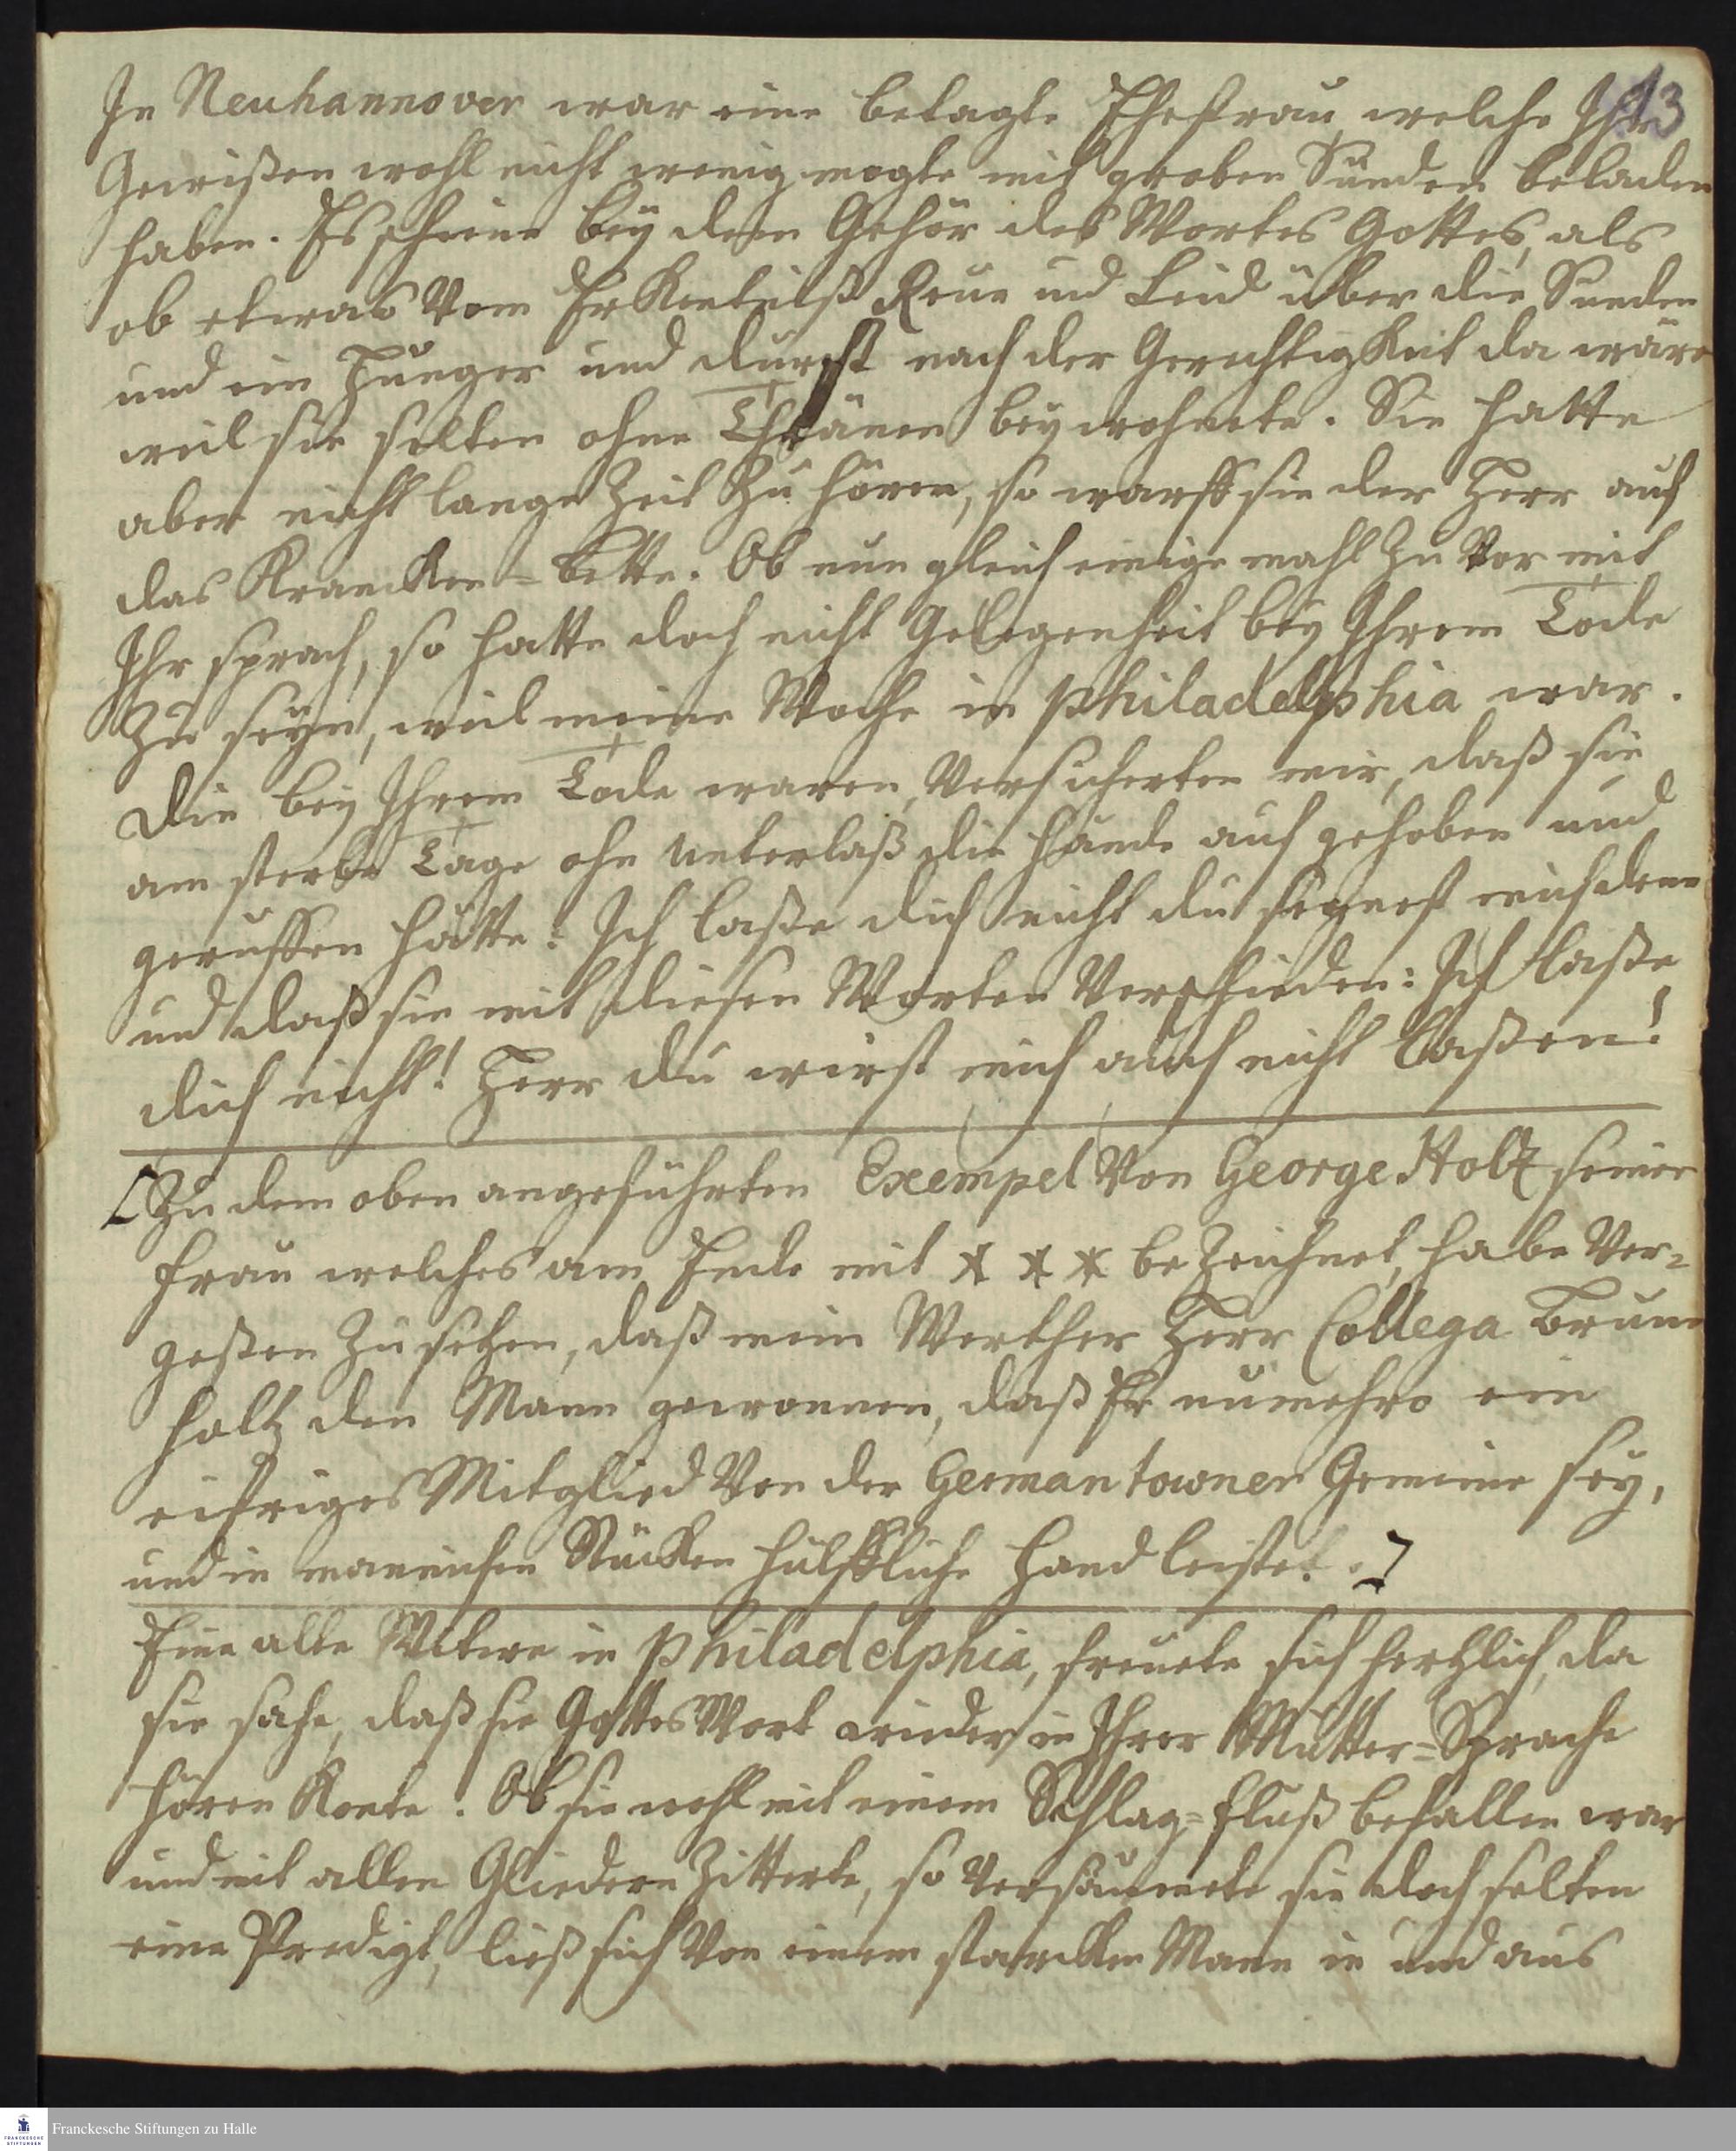 13
In Neuhannover war eine betagte Ehefrau, welche Ihr
Gewißen wohl nicht wenig mogte mit groben Sünden beladen
haben. Es scheine bey dem Gehör des Wortes Gottes, als
ob etwas Vom Erkentniß Reue und Leid über die Sünden
und ein Hunger und durst nach der Gerechtigkeit da wäre
weil sie selten ohne Thränen beywohnete. Sie hatte
aber nicht lange Zeit zu hören, so warff sie der Herr auf
das Krancken=bette. Ob nun gleich einige mahl zu Vor mit
Ihr sprach, so hatte doch nicht Gelegenheit bey Ihrem Tode
zu seyn, weil meine Woche in Philadelphia war.
Die bey Ihrem Tode waren, Versicherten mir, daß sie
am sterbe Tage ohn Unterlaß die Hände auf gehoben und
geruffen hätte: Ich laße dich nicht du segnest mich denn
und daß sie mit diesen Worten Verschieden: Ich laße
dich nicht! Herr du wirst mich auch nicht laßen!
[Zu dem oben angeführten Exempel Von George Holtz seiner
Frau welches am Ende mit * * * bezeichnet, habe Ver=
geßen zu setzen, daß mein Werther Herr Collega Brun
holtz den Mann gewonnen, daß Er numehro ein
eifriges Mitglied Von der Germantowner Gemeine sey,
und in mannichen Stücken hülffliche Hand leistet.]
Eine alte Witwe in Philadelphia, freuete sich hertzlich, da
sie sahe, daß sie Gottes Wort wieder in Ihrer Mutter=Sprache
hören konte. Ob sie wohl mit einem Schlag=fluß befallen war
und mit allen Gliedern Zitterte, so Versäumete sie doch selten
eine Predigt, ließ sich Von einem starcken Mann in und aus
Franckesche Stiftungen zu Halle
FRANCKESCHE
STIFTUNGEN